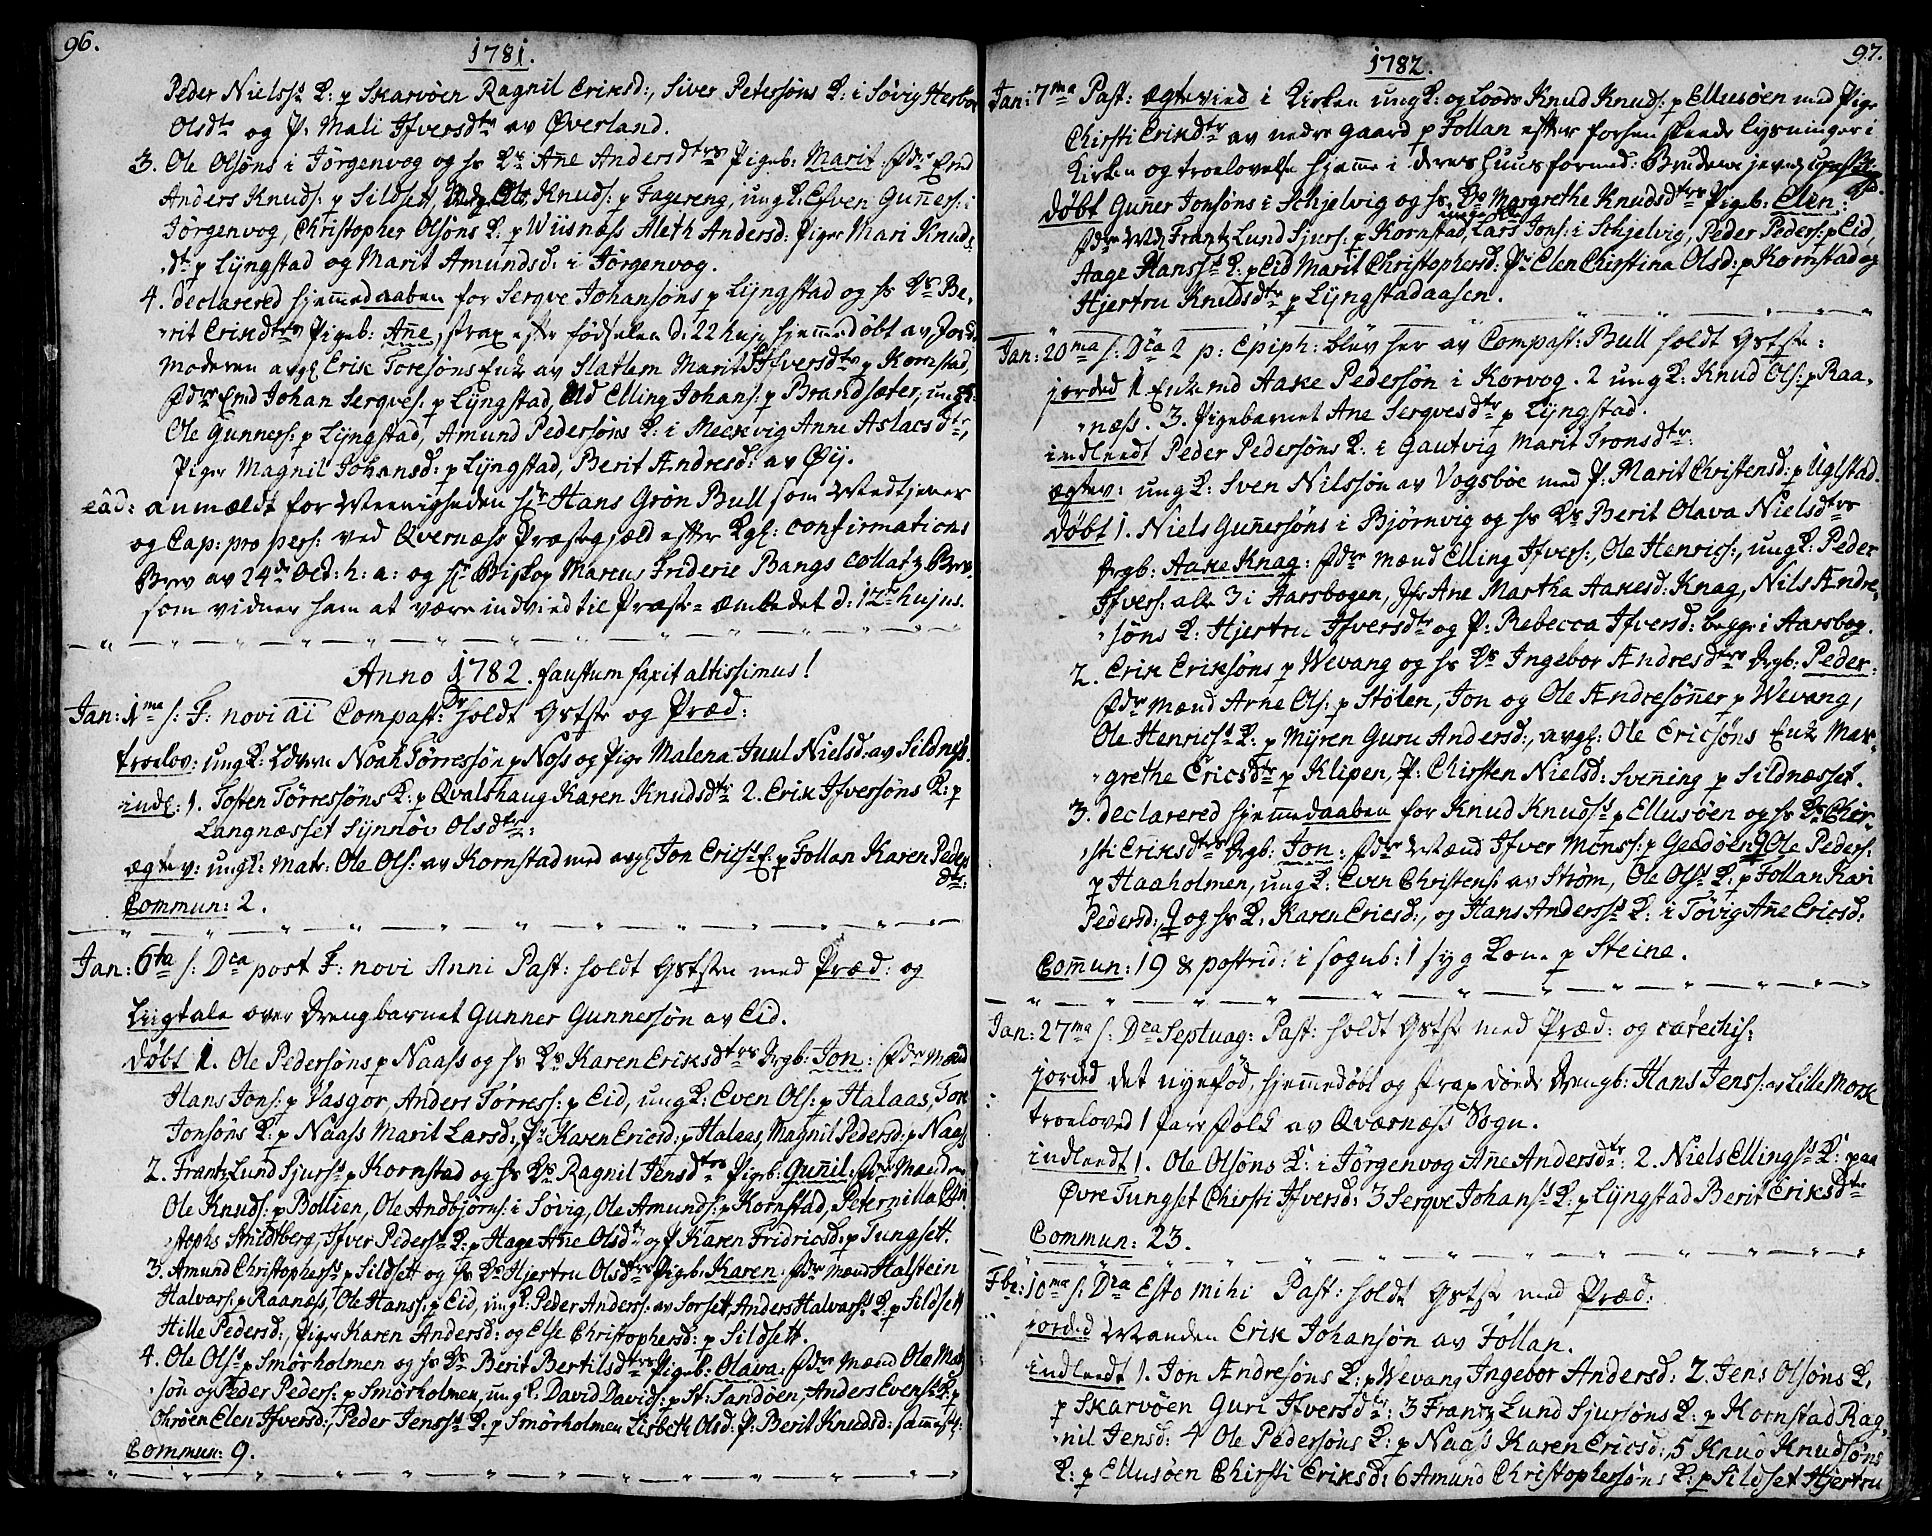 96.
1781.
Peder Nielss: K: p Skarvøen Ragnil Eriksd:, Siver Petersøns K: i Søvig Herbor
Olsdtr og P: Mali Ifversdtr av Øverland.
3. Ole Olsøns i Jørgenvog og hs Ks Añe Andersdtrs Pigeb: Marit. Fdr Emd
Anders Knuds: p Sildset, Ole Knuds: p Fagereng, ungK: Esven Guñers: i
Jørgenvog, Christopher Olsøns K: p Wiisnæss Aleth Andersd: Piger Mari Knud:
dtr p Lyngstad og Marit Amundsd: i Jørgenvog.
4. declarered hjemmedaaben for Serqve Johansøns p Lyngstad og hs Ks Be,
rit Eriksdtrs Pigeb: Añe, strax efter fødselen d: 22 huj: hjemedøbt av Jord
moderen avgl Erik Toresøns Enke av Slatlem Marit Ifversdtr p Kornstad,
Fdr Emd Johan Serqves: p Lyngstad, Elling Johans: p Brandsæter, ungK:
Ole Gunners: p Lyngstad, Amund Pedersøns K: i Meekvig Anne Aslacsdtr,
Piger Magnil Johansd: p Lyngstad, Berit Andresd: av Øy.
eâd: anmældt for Meenigheden Hr Hans Grøn Bull som Medtjener
og Cap: pro pers: ved Qvernæss Præstegjæld efter Kgl: confirmations
Brev av 24de Oct: h: a: og Hr Biskop Marcus Frideric Bangs collatz Brev
som vidner ham at være indviedtil Præste=æmbedet d: 12te hujus.
Anno 1782. faustum faxit altissimus!
Jan: 1ma s: F: novi añi Compast: Br holdt Gstste og Præd:
troelov: ungK: Ldvern Noah Tørressøn p Noss og Pige Malena Juul Nielsd: av Sildnæss.
indl: 1. Tosten Tørressøns K: p Qvalshaug Karen Knudsdtr 2. Erik Ifversøns K: p
Langnæsset Synnøv Olsdtr:
ægtev: ungK: Matr: Ole Ols: av Kornstad med avgl Jon Ericss E: p Follan Karen Peders
dtr:
Commun: 2.
Jan: 6ta s: Dca post F: novi Anni Past: holdt Gstste med Præd: og
Liigtale over Drengbarnet Gunner Gunnersøn av Eid.
døbt 1. Ole Pedersøns p Naass og hs Ks Karen Eriksdtrs Drgb: Jon: Fdr Mænd
Hans Jons: p Vasgor, Anders Tørress: p Eid, ungK: Even Ols: p Halaas, Tore
Jonsøns K: p Naass Marit Larsd:, Pr Karen Ericsd: p Halaas, Magnil Pedersd: p Naass
2. Frantz Lund Sjurss p Kornstad og hs Ks Ragnil Jensdtrs Pigb: Guñil: Fdr Mænd
Ole Knuds: p Bollien, Ole Andbjørns: i Søvig, Ole Amunds: p Kornstad, Peternilla Chri
stophs Stridsberg, Ifver Pederss K: p Hage Añe Olsdtr og P Karen Fridricsd: p Tungset.
3. Amund Christopherss p Sildsett og hs Ks Hjertru Olsdtrs Pigb: Karen: Fdr Mænd Halstein
Halvars: p Raanæss, Ole Hanss: p Eid, ungK: Peder Anders: av Sorsett, Anders Halvarss K: p Sildsett
Hille Pedersd:, Piger Karen Andersd: og Else Christophersd: p Sildsett.
4. Ole Olss p Smørholmen og hs Ks Berit Bertilsdtrs Pigeb: Olava: Fdr Mænd Ole Mat,
søn og Peder Peders: p Smørholmen, ungK: David Davids: p St: Sandøen, Anders Evenss K: p
Ohrøen Elen Ifversd:, Peder Jenss K: p Smørholmen Lisbeth Olsd: P: Berit Knudsd: sammest:
Commun: 9.
97.
1782.
Jan: 7ma Past: ægtevied i Kirken ungK: og Lods Knud Knuds: p Ellusøen med Pige
Chirsti Eriksdtr av nedre gaard p Follan efter forhen skeede Lysninger i
Kirken og troelovelse hjemme i deres Huus formed: Brudens
døbt Guner Jonsøns i Schjelvig og hs Ks Margrethe Knudsdtrs Pigeb: Elen:
Fdr Md Frantz Lund Sjurs: p Kornstad, Lars Jons: i Schjelvig, Peder Peders: p Eid,
Aage Hanss K: p Eid Marit Christophersd: Pr Elen Chirstina Olsd: p Kornstad og
Hjertru Knudsdtr p Lyngstadaasen.
Jan: 20ma s: Dca 2 p: Epiph: blev her av Compast: Bull holdt Gstste:
jorded 1 Enkemd Aake Pedersøn i Korvog. 2 ungK: Knud Ols: p Raa,
næss. 3. Pigebarnet Ane Serqvesdtr p Lyngstad.
indleedt Peder Pedersøns K: i Gautvig Marit Tronsdtr:
ægtev: ungK: Sven Nilssøn av Vogsbøe med P: Marit Christensd: p Uglstad.
døbt 1. Niels Guñersøns i Bjørnvig og hs Ks Berit Olava Nielsdtrs
Drgb: Aake Knag: Fdr Mænd Elling Ifvers:, Ole Henrics:, ungK: Peder
Ifvers: alle 3 i Aarsbogen, Jfr Ane Martha Aakesd: Knag, Nils Andre,
søns K: Hjertru Ifversdtr og P: Rebecca Ifversd: begge i Aarsbog.
2. Erik Eriksøns p Wevang og hs Ks Ingebor Andresdtrs Drgb: Peder:
Fdr Mænd Arne Ols: p Stølen, Jon og Ole Andresøner p Wevang,
Ole Henricss K: p Myren Guru Andersd:, avgl: Ole Ericsøns Enke Mar,
grethe Ericsdtr p Klipen, P: Chirsten Nielsd: Svening p Sildnæsset.
3. declarered hjemmedaaben for Knud Knudss p Ellusøen og hs Ks Chir,
sti Eriksdtrs Drgb: Jon: Fdr Mænd Ifver Monss: p Geedøen, Ole Peders:
p Haaholmen, ungK: Even Christens: av Strøm, Ole Olss K: p Follan Kari
Pedersd:, og hs K: Karen Ericsd:, og Hans Anderss K: i Tøvig Añe Ericsd.
Commun: 19 & postrid: i sognb: 1 syg Kone p Steine.
Jan: 27ma s: Dca Septuag: Past: holdt Gstste med Præd: og catechis:
jorded det nyefød, hjemmedøbt og strax døede Drengb: Hans Jenss: av Lille Mork
troeloved 1 Par Folk av Qværnæss Sogn.
indleedt 1. Ole Olsøns K: i Jørgenvog Añe Andersdtr: 2. Niels Ellingss K: paa
Øvre Tungset Chirsti Ifversd: 3 Serqve Johanss K: p Lyngstad Berit Eriksdtr
Commun: 23.
Fbr: 10ma s: Dca Esto mihi Past: holdt Gstste med Præd:
jorded Manden Erik Johansøn av Follan.
indleedt 1. Jon Andresøns K: p Wevang Ingebor Andersd: 2. Jens Olsøns K:
p Skarvøen Guri Ifversdtr: 3 Frantz Lund Sjursøns K: p Kornstad Rag,
nil Jensd: 4 Ole Pedersøns K: p Naass Karen Ericsd: 5 Knud Knudsøns
K: p Ellusøen Chirsti Eriksd: 6 Amund Christophersøns K: p Sildset Hjertru